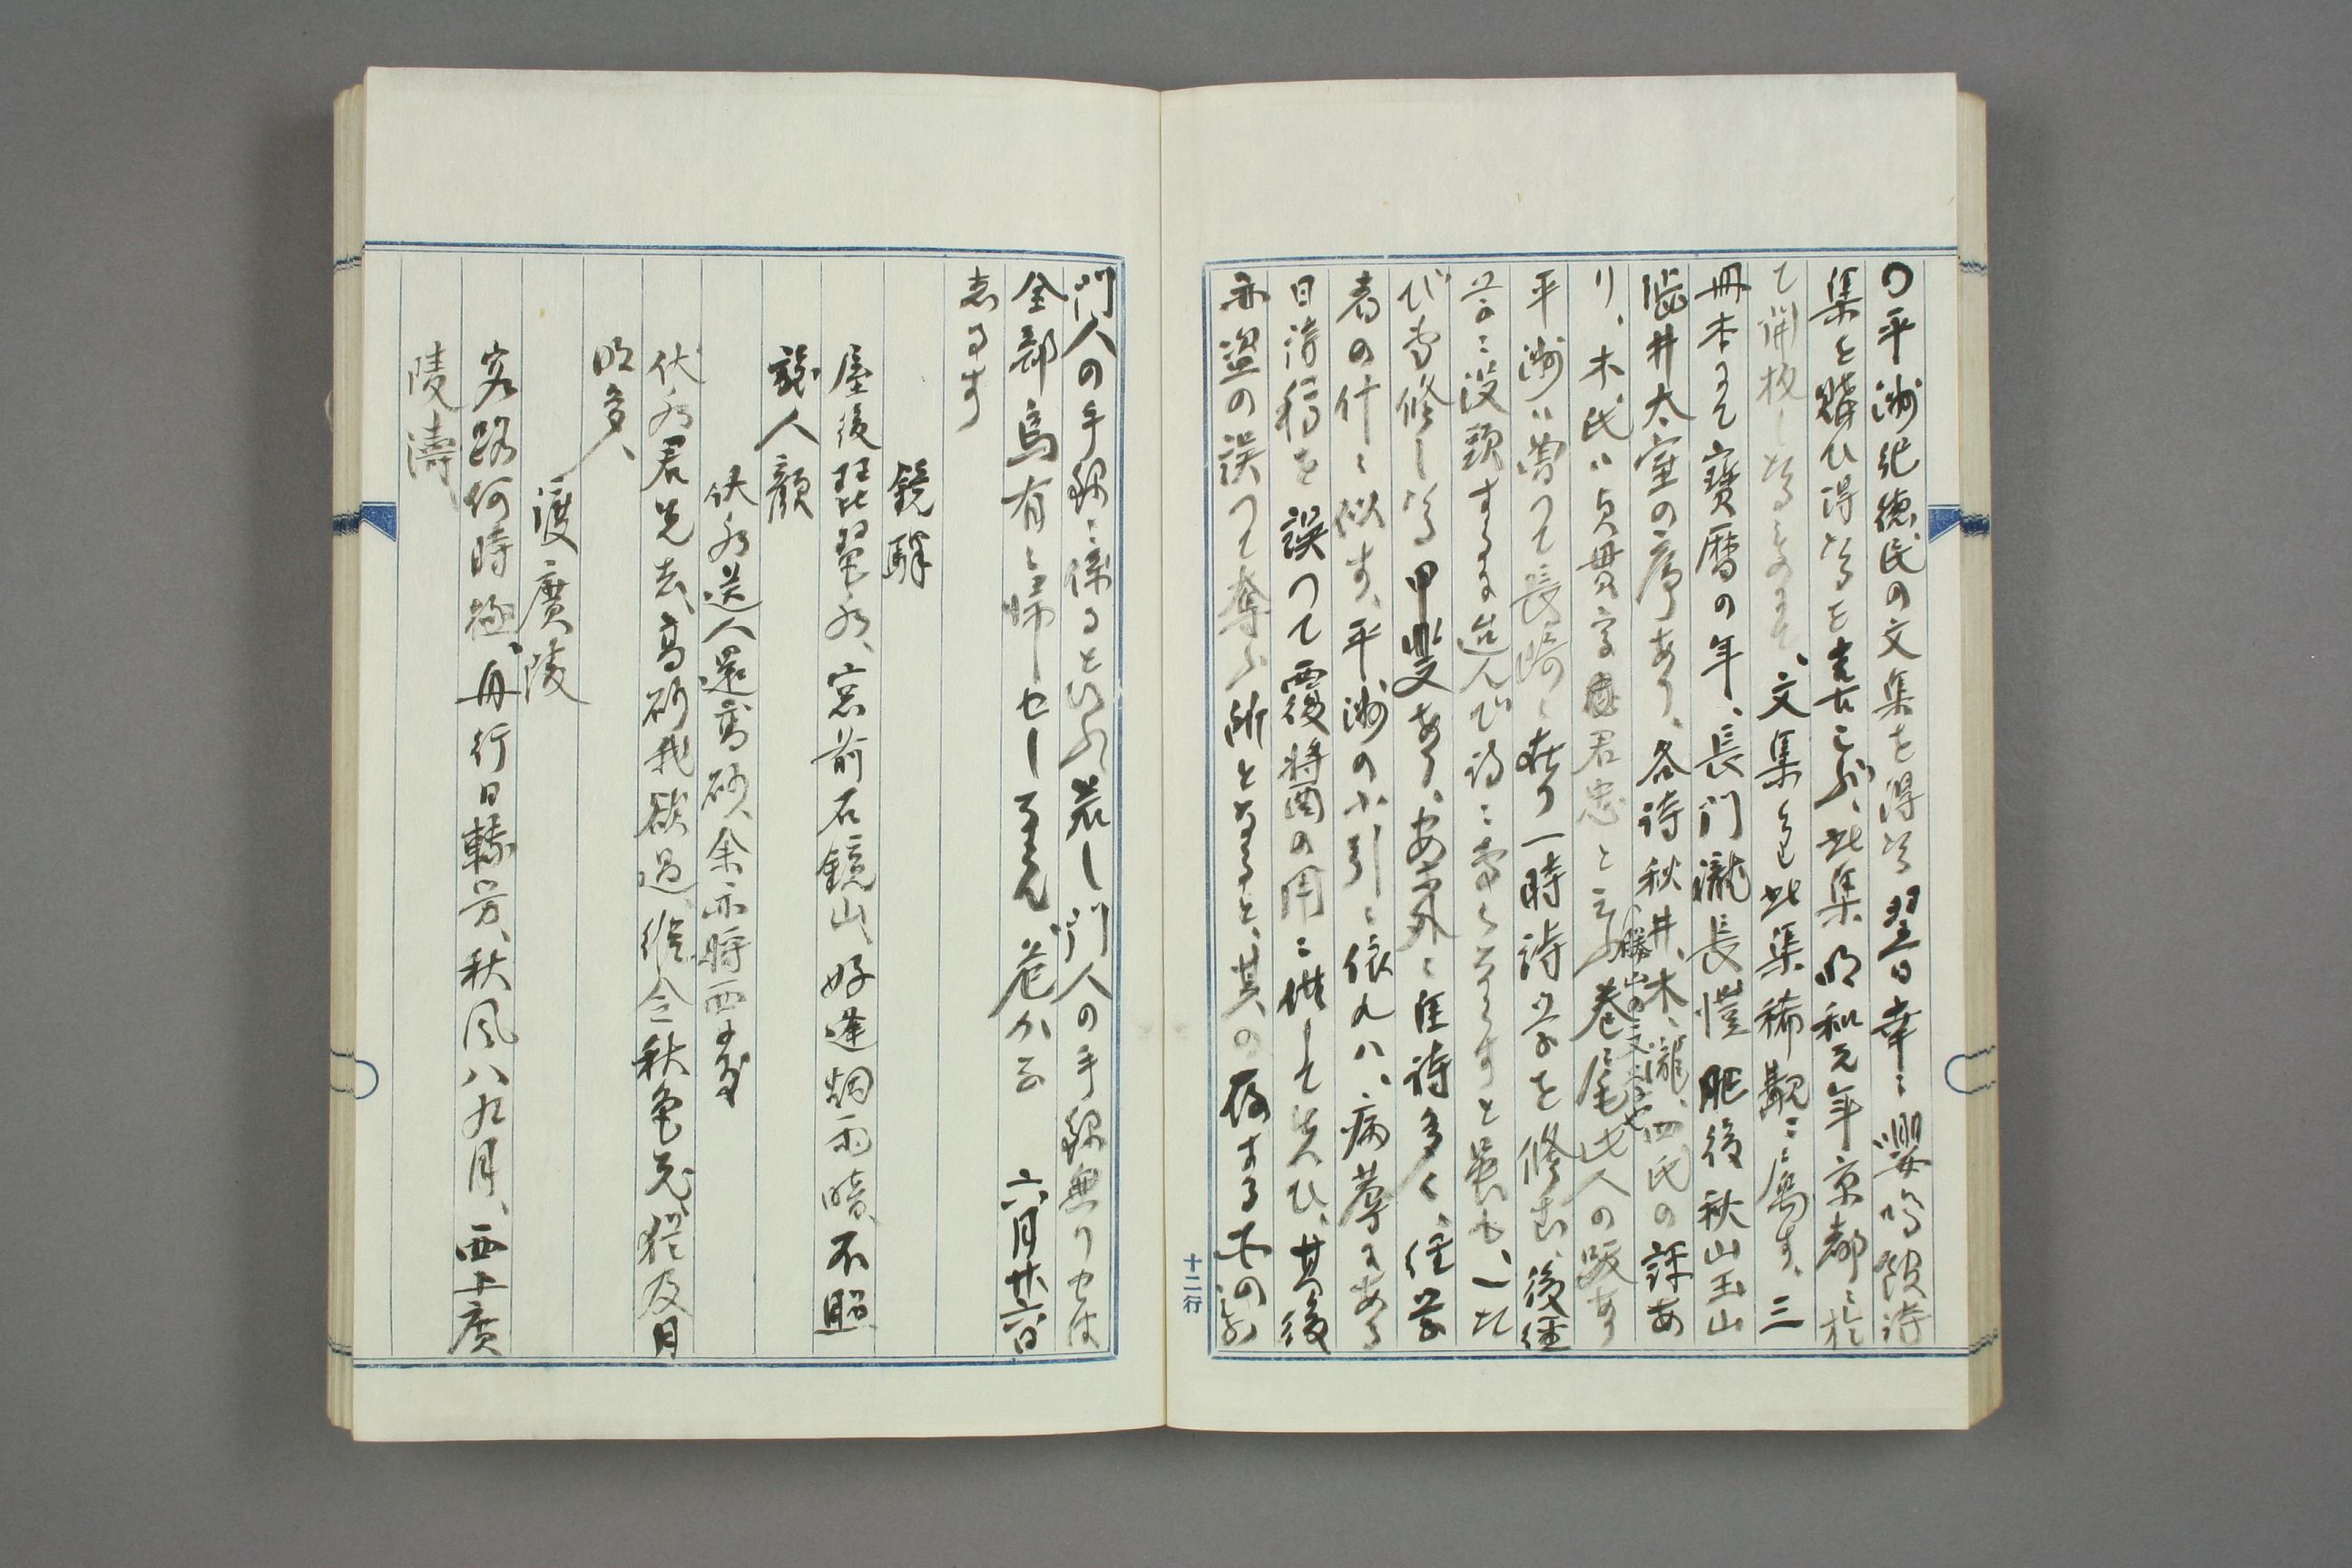 〇平洲紀徳民の文集を得たる翌日幸に嚶鳴館詩
集を購ひ得たるを喜こぶ、此集明和元年京都に於
て開板したるものにて、文集も此集稀覯に属す、三
冊本にて寶暦の年、長門瀧長愷肥後秋山玉山
澁井太室の序あり、各詩秋、井、木、瀧、四氏の評あ
り、木氏は貞貫字君忠と云ふ巻尾此人の跋あり
平洲は曽つて長崎に在り一時詩学を修む、後経
学に没頭するに及んで詩に
び専修したる甲斐あり、案外に佳詩多く、経学
者の什に似ず、平洲の小引に依れハ、病蓐にある
日詩稿を誤つて覆醤の用に供して失ひ、其後
亦盗の誤つて奪ふ所となると、其の存するもの
門人の手録に係るといふ、若し門人の手録無りせは
全部烏有に帰せしならん、危かな　六月廿六日
志るす
鏡驛
屋後琵琶水、窓前石鏡山、好逢烟雨暗、不照
旅人顔
伏水送人還高砂、余亦将西
伏水君先去、高砂我欲過、縦令秋色老、猶及月
明多、
渡廣陵
客路何時極、舟行日轉労、秋風八九月、西上廣
陵濤、
十二行